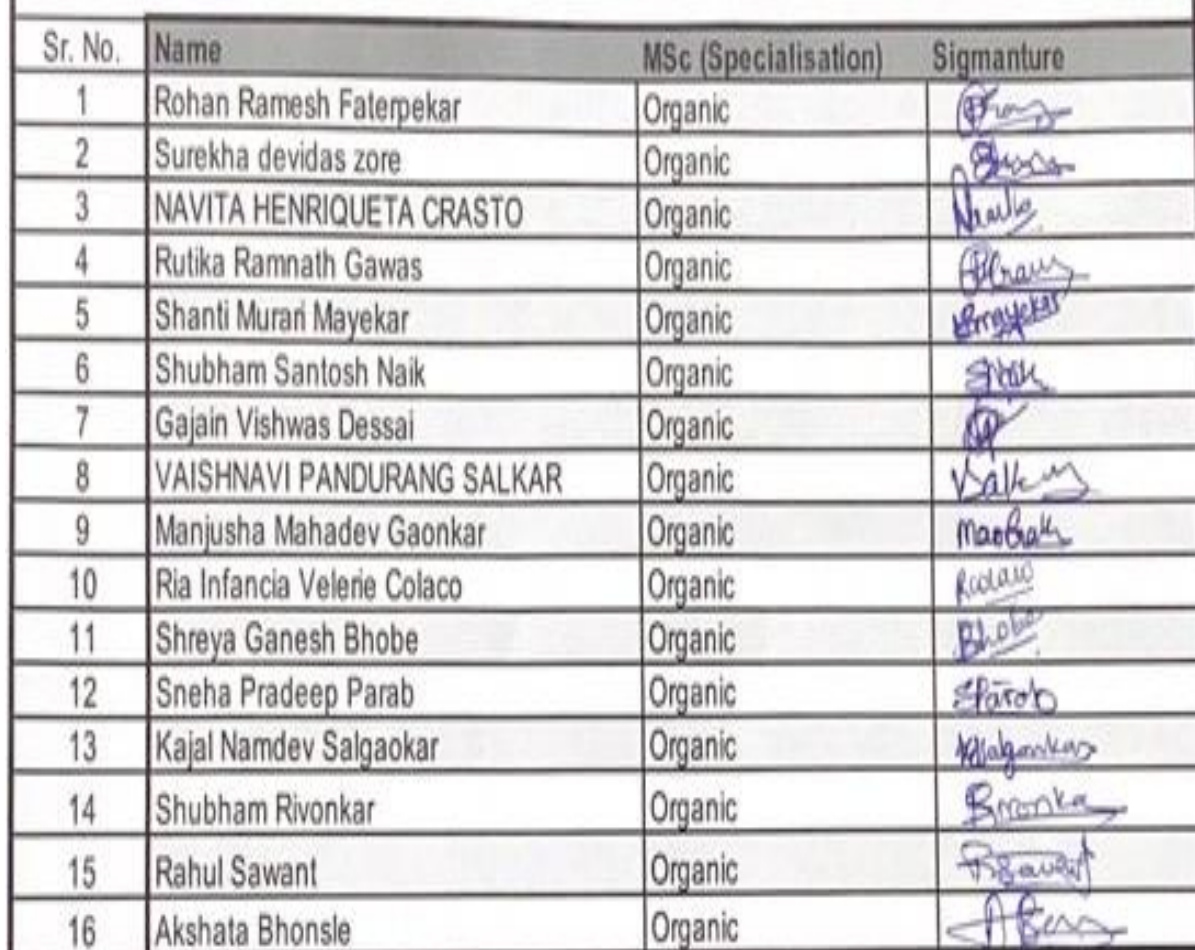 Sr. No. Name MSc (Specialisation) Sigmanture
1 Rohan Ramesh Faterpekar Organic
2 Surekha devidas zore Organic
3 NAVITA HENRIQUETA CRASTO Organic
4 Rutika Ramnath Gawas Organic
5 Shanti Murari Mayekar Organic Smayekar
6 Shubham Santosh Naik Organic SNaik
7 Gajain Vishwas Dessai Organic
8 VAISHNAVI PANDURANG SALKAR Organic
9 Manjusha Mahadev Gaonkar Organic
10 Ria Infancia Velerie Colaco Organic Rcolaco
11 Shreya Ganesh Bhobe Organic Bhobe
12 Sneha Pradeep Parab Organic SParab
13 Kajal Namdev Salgaokar Organic
14 Shubham Rivonkar Organic
15 Rahul Sawant Organic
16 Akshata Bhonsle Organic